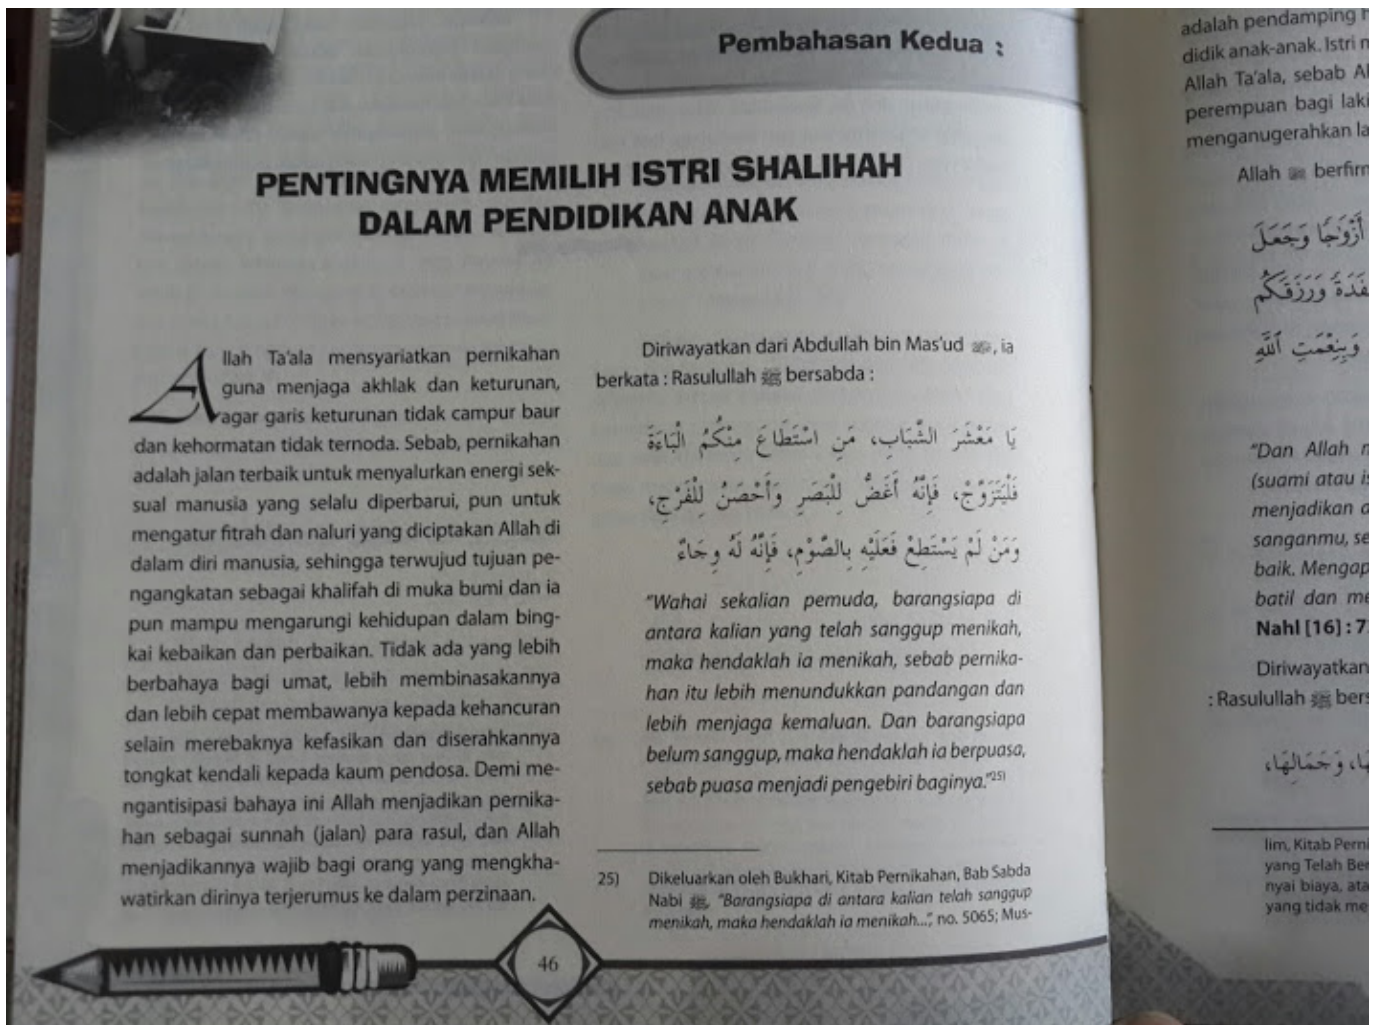 Pembahasan Kedua :
PENTINGNYA MEMILIH ISTRI SHALIHAH
DALAM PENDIDIKAN ANAK
Allah Ta'ala mensyariatkan pernikahan
guna menjaga akhlak dan keturunan,
agar garis keturunan tidak campur baur
dan kehormatan tidak ternoda. Sebab, pernikahan
adalah jalan terbaik untuk menyalurkan energi sek-
sual manusia yang selalu diperbarui, pun untuk
mengatur fitrah dan naluri yang diciptakan Allah di
dalam diri manusia, sehingga terwujud tujuan pe-
ngangkatan sebagai khalifah di muka bumi dan ia
pun mampu mengarungi kehidupan dalam bing-
kai kebaikan dan perbaikan. Tidak ada yang lebih
berbahaya bagi umat, lebih membinasakannya
dan lebih cepat membawanya kepada kehancuran
selain merebaknya kefasikan dan diserahkannya
tongkat kendali kepada kaum pendosa. Demi me-
ngantisipasi bahaya ini Allah menjadikan pernika-
han sebagai sunnah (jalan) para rasul, dan Allah
menjadikannya wajib bagi orang yang mengkha-
watirkan dirinya terjerumus ke dalam perzinaan.
Diriwayatkan dari Abdullah bin Mas'ud, ia
berkata : Rasulullah ﷺ bersabda :
يَا مَعْشَرَ الشَّبَابِ، مَنِ اسْتَطَاعَ مِنْكُمُ الْبَاءَةَ
فَلْيَتَزَوَّجْ، فَإِنَّهُ أَغَضُّ لِلْبَصَرِ وَأَحْصَنُ لِلْفَرْجِ،
وَمَنْ لَمْ يَسْتَطِعْ فَعَلَيْهِ بِالصَّوْمِ، فَإِنَّهُ لَهُ وِجَاءٌ
"Wahai sekalian pemuda, barangsiapa di
antara kalian yang telah sanggup menikah,
maka hendaklah ia menikah, sebab pernika-
han itu lebih menundukkan pandangan dan
lebih menjaga kemaluan. Dan barangsiapa
belum sanggup, maka hendaklah ia berpuasa,
sebab puasa menjadi pengebiri baginya."25)
25) Dikeluarkan oleh Bukhari, Kitab Pernikahan, Bab Sabda
Nabi ﷺ, "Barangsiapa di antara kalian telah sanggup
menikah, maka hendaklah ia menikah...", no. 5065; Mus-
46
adalah pendamping
didik anak-anak. Istri
Allah Ta'ala, sebab
perempuan bagi
menganugerahkan
Allah
أَزْوَٰجًا وَجَعَلَ
وَرَزَقَكُم
وَبِنِعْمَتِ ٱللَّهِ
"Dan Allah
(suami atau
menjadikan
sanganmu,
baik.
batil dan
Nahl [16] :
Diriwayatkan
: Rasulullah ﷺ
وَجَمَالِهَا،
lim, Kitab
yang Telah
nyai biaya,
yang tidak